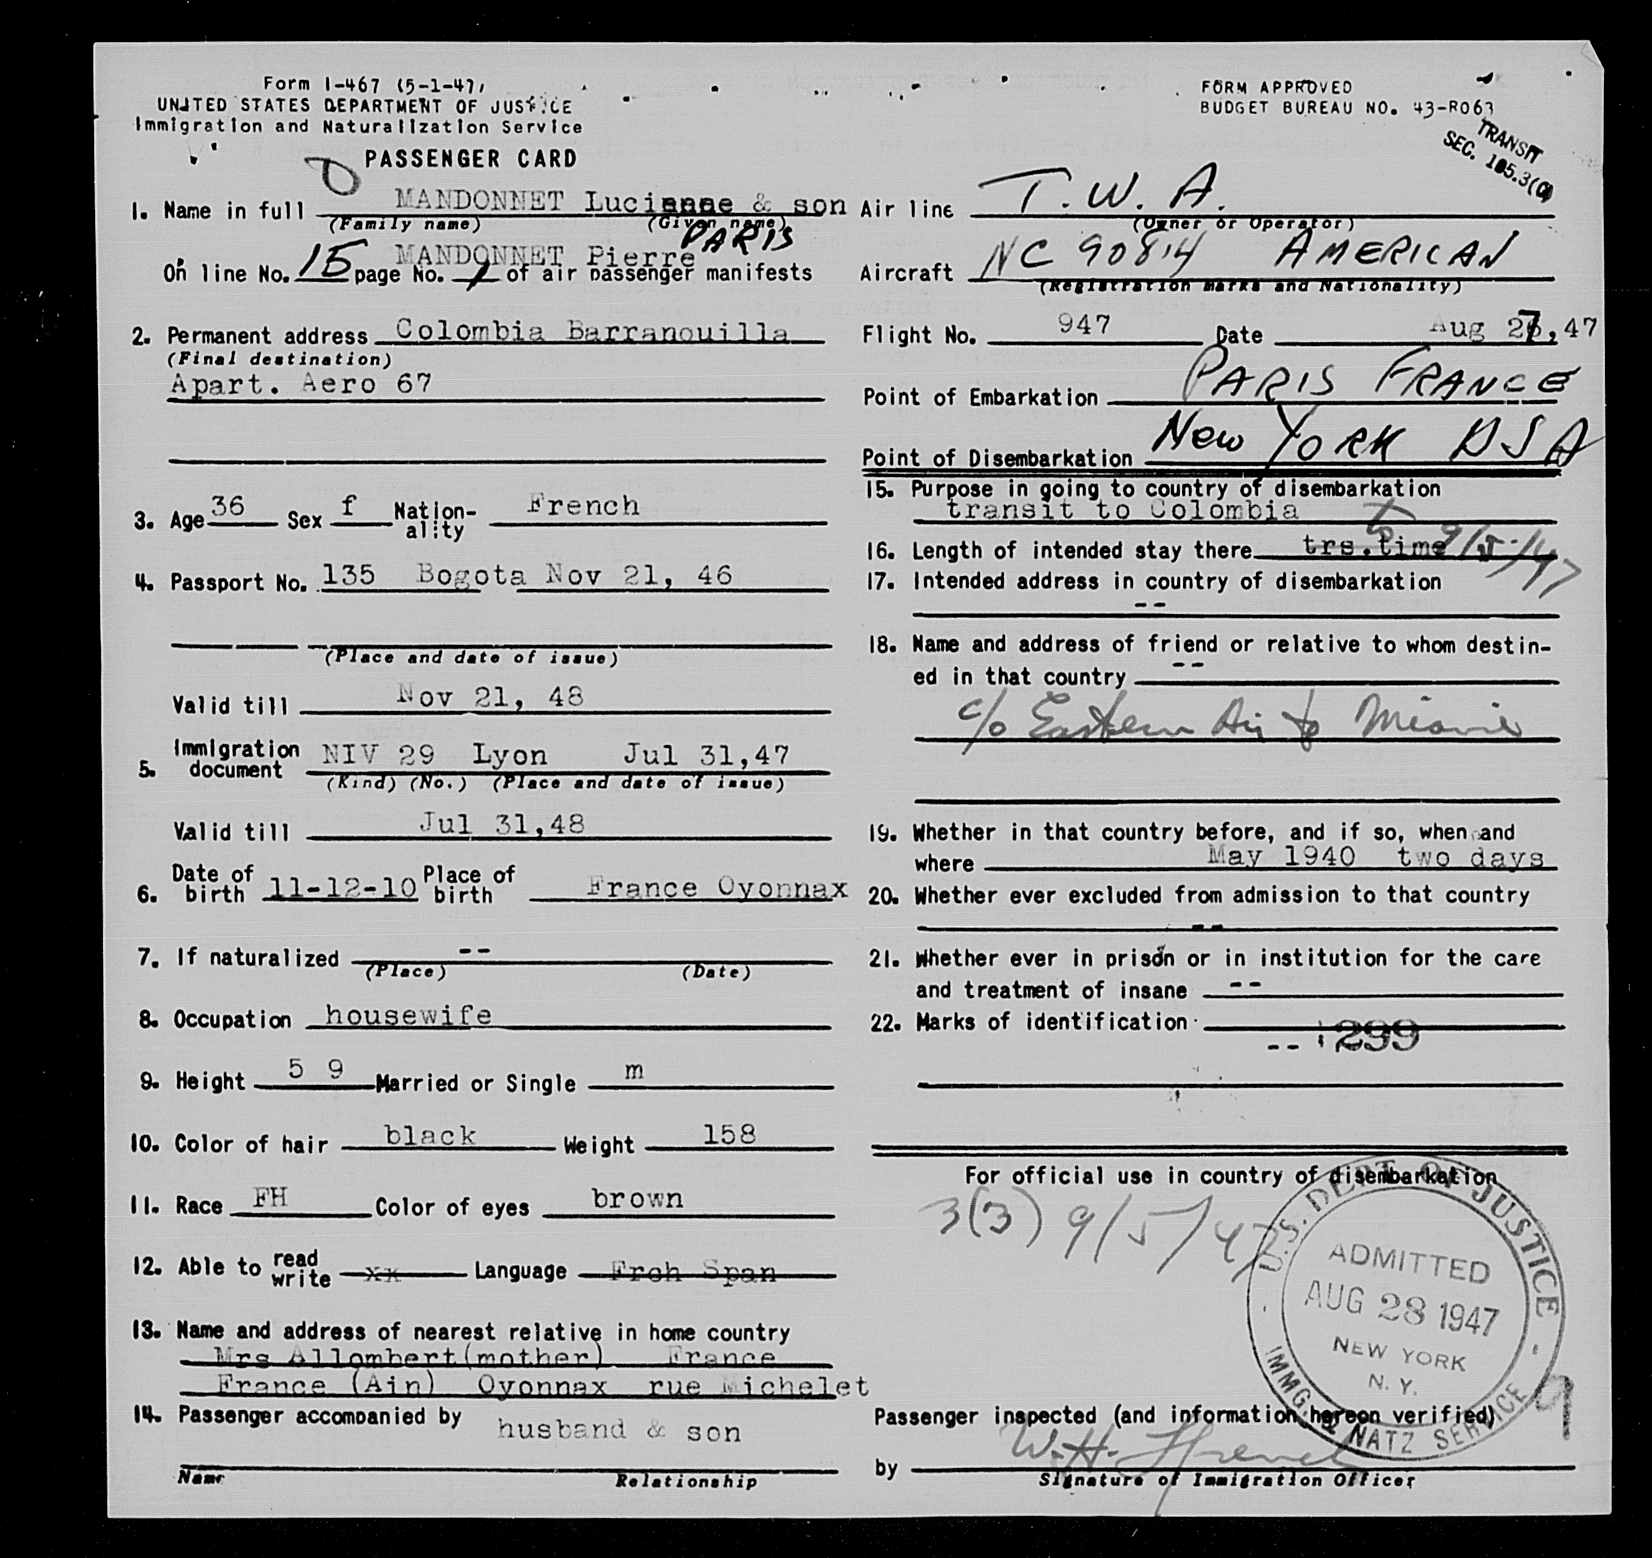 Form I-467 (5-1-47)
UNITED STATES DEPARTMENT OF JUSTICE
Immigration and Naturalization Service
PASSENGER CARD
FORM APPROVED
BUDGET BUREAU NO. 43-R063
TRANSIT
SEC. 105.3(C)
1. Name in full MANDONNET Lucienne & son
(Family name) (Given name)
PARIS
MANDONNET Pierre
On line No. 15 page No. 1 of air passenger manifests
2. Permanent address Colombia Barranquilla
(Final destination)
Apart. Aero 67
3. Age 36 Sex f Nation-ality French
4. Passport No. 135 Bogota Nov 21, 46
(Place and date of issue)
Valid till Nov 21, 48
5. Immigration document NIV 29 Lyon Jul 31,47
(Kind) (No.) (Place and date of issue)
Valid till Jul 31,48
6. Date of birth 11-12-10 Place of birth France Oyonnax
7. If naturalized --
(Place) (Date)
8. Occupation housewife
9. Height 5 9 Married or Single m
10. Color of hair black Weight 158
11. Race FH Color of eyes brown
12. Able to read write xx Language Frch Span
13. Name and address of nearest relative in home country
Mrs Allombert(mother) France
France (Ain) Oyonnax rue Michelet
14. Passenger accompanied by husband & son
Name Relationship
Air line T.W.A.
(Owner or Operator)
Aircraft NC 90814 AMERICAN
(Registration marks and Nationality)
Flight No. 947 Date Aug 27, 47
Point of Embarkation PARIS FRANCE
Point of Disembarkation New YORK USA
15. Purpose in going to country of disembarkation
transit to Colombia
16. Length of intended stay there trs.time to 9/5/47
17. Intended address in country of disembarkation
--
18. Name and address of friend or relative to whom destin-
ed in that country --
c/o Eastern Air to Miami
19. Whether in that country before, and if so, when and
where May 1940 two days
20. Whether ever excluded from admission to that country
--
21. Whether ever in prison or in institution for the care
and treatment of insane --
22. Marks of identification
-- 299
For official use in country of disembarkation
3(3) 9/5/47
U.S. DEPT. OF JUSTICE
ADMITTED
AUG 28 1947
NEW YORK
N. Y.
IMMG. & NATZ SERVICE
9
Passenger inspected (and information hereon verified)
by W.H. French
Signature of Immigration Officer